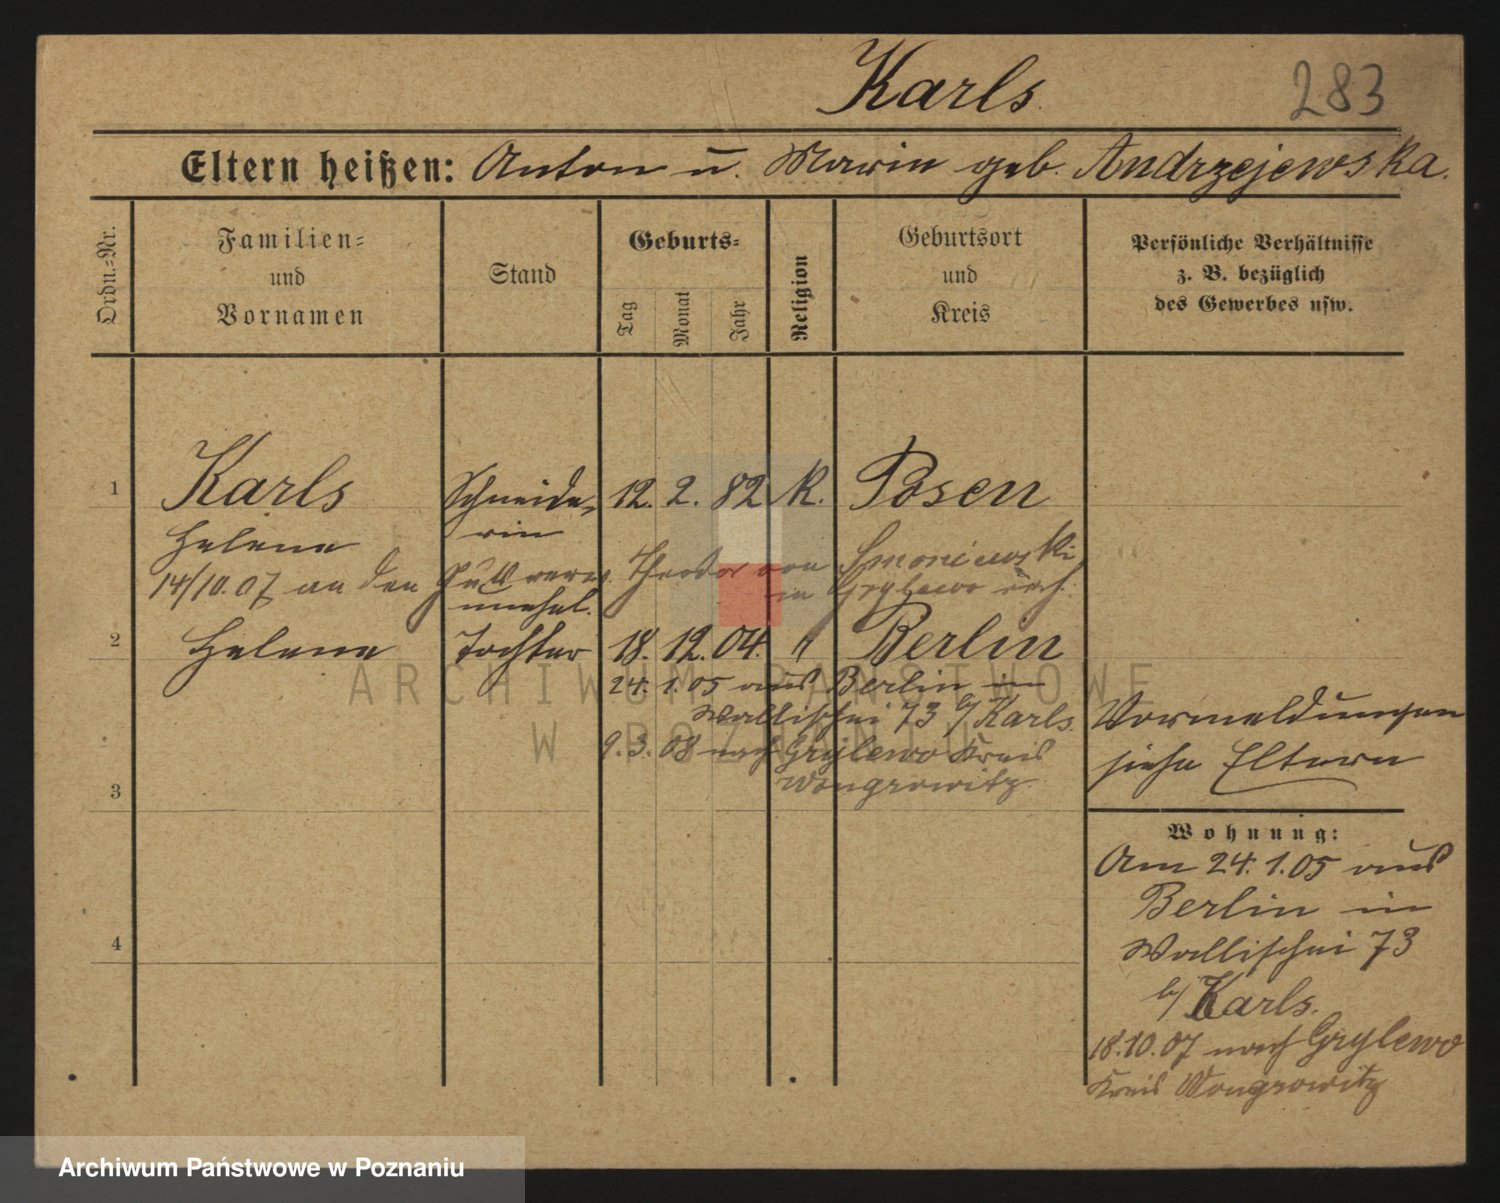 Karls.
283
Eltern heißen: Anton u. Maria geb. Andrzejewska.
Ordn.-Nr.
Familien-
und
Vornamen
Stand
Geburts-
Tag
Monat
Jahr
Religion
Geburtsort
und
Kreis
Persönliche Verhältnisse
z. B. bezüglich
des Gewerbes usw.
1 Karls Schneide- 12. 2. 82 K. Posen
Helene rin
14/10.07 an den Theodor von Smoniewski
in Grylewo verh.
unehel.
2 Helene Tochter 18. 12. 04. " Berlin
24. 1. 05 aus Berlin in
Wallischei 73 b/ Karls.
9. 3. 08 nach Grylewo Kreis
Wongrowitz.
3
4
Vormeldungen
siehe Eltern
Wohnung:
Am 24. 1. 05 aus
Berlin in
Wallischei 73
b/ Karls.
18.10.07 nach Grylewo
Kreis Wongrowitz
ARCHIWUM PAŃSTWOWE
W POZNANIU
Archiwum Państwowe w Poznaniu